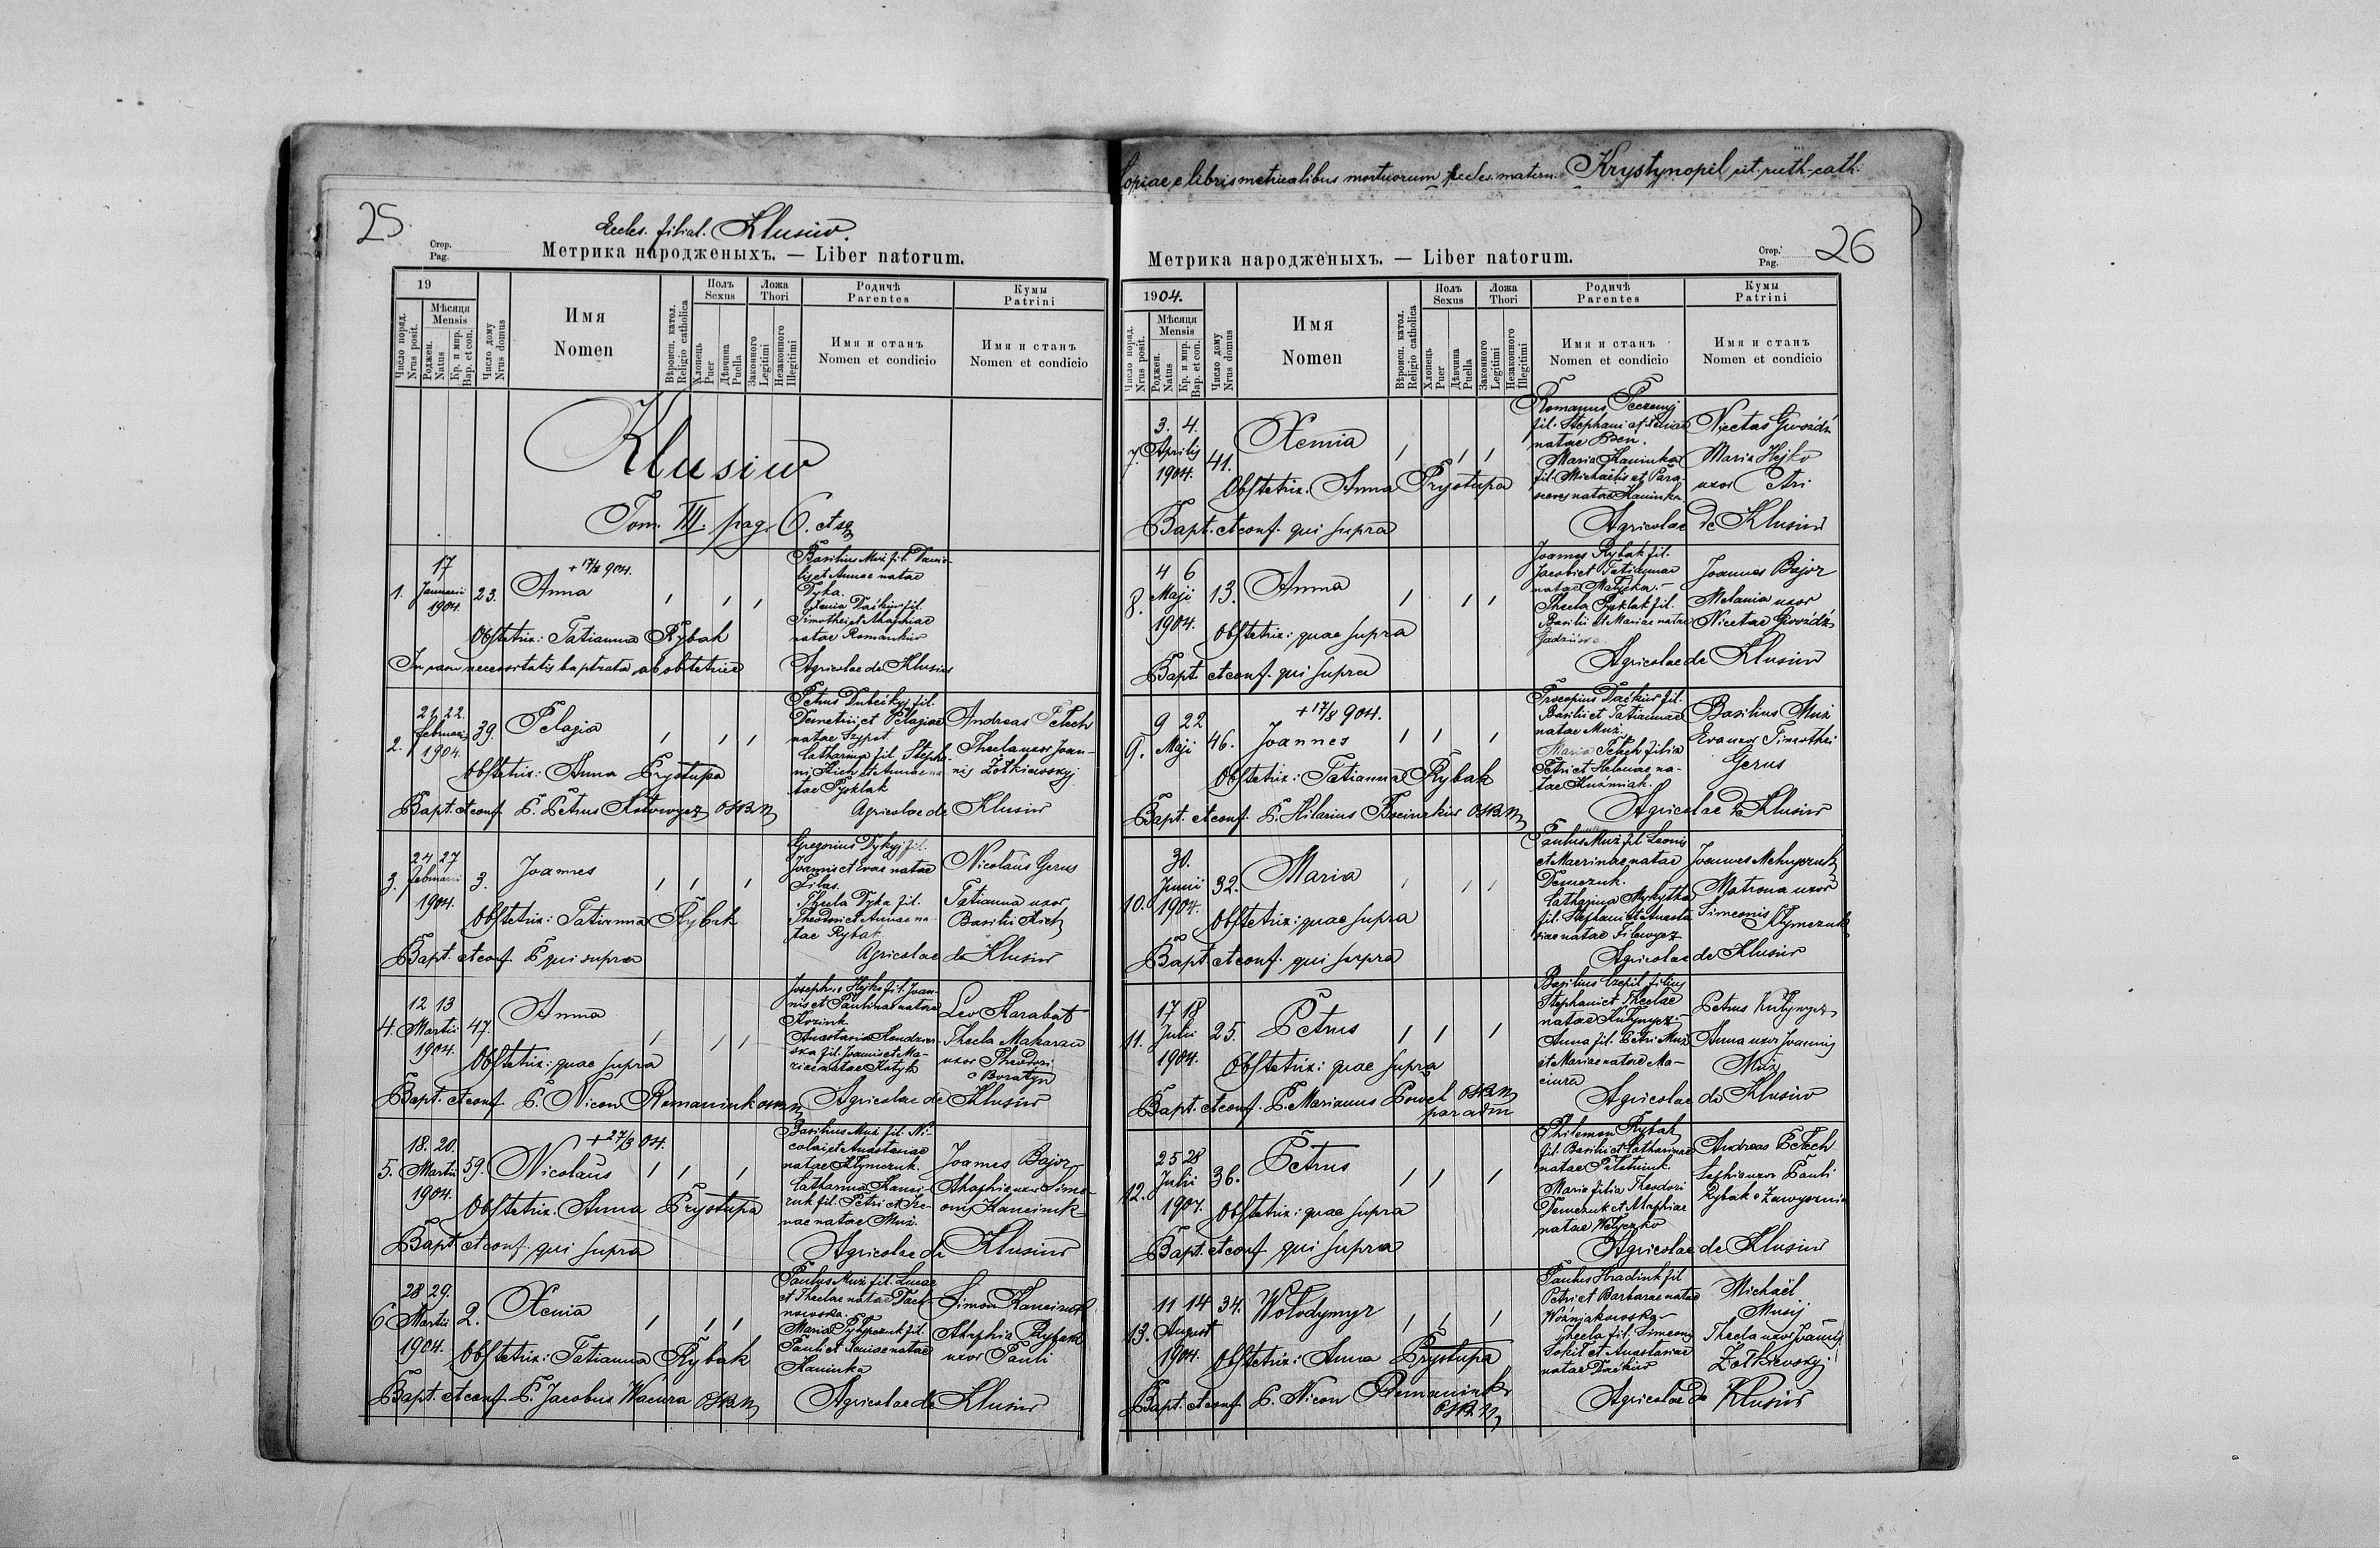 25
Eccles. filial. Klusiw.
Стор.
Pag.
Метрика народженыхъ. — Liber natorum.
19
Число поряд.
Nrus posit.
Мѣсяця
Mensis
Роджен.
Natus
Кр. и мир.
Bap. et con.
Число дому
Nrus domus
Имя
Nomen
Вѣроисп. катол.
Religio catholica
Полъ
Sexus
Хлопець
Puer
Дѣвчина
Puella
Ложа
Thori
Законного
Legitimi
Незаконного
Illegitimi
Родичѣ
Parentes
Имя и станъ
Nomen et condicio
Кумы
Patrini
Имя и станъ
Nomen et condicio
Klusiw
Tom. III. pag. 6. et sq
1. 17 Januarii 1904. 23. Anna
Basilius Muź fil. Danie-
lis et Annae natae
Dyka.
Xenia Daćkiw fil.
Timothei et Ahaphiae
natae Romankiw
Obstetrix: Tatianna Rybak
In casu necessitatis baptizata ab obstetrice
Agricolae de Klusiw
2. 21 22. Februarii 1904. 39. Pelagia
Petrus Dubećkyj fil.
Demetrii et Pelagiae
natae Szypot
Catharina fil. Stepha-
ni Kich et Annae na
tae Pyklak
Andreas Petech
Thecla uxor Joan-
nis Żołkiewskyj
Obstetrix: Anna Prystupa
Bapt. et conf. P. Petrus Kotowycz OSBM
Agricolae de Klusiw
3. 24 27 Februarii 1904. 3. Joannes
Gregorius Dykyj fil.
Joannis et Evae natae
Filas.
Thecla Dyka fil.
Theodori et Annae na-
tae Rybak
Nicolaus Gerus
Tatianna uxor
Basilii Kich
Obstetrix: Tatianna Rybak
Bapt. et conf. P. qui supra
Agricolae de Klusiw
4 12 13 Martii 1904. 47. Anna
Joseph. Hejko fil. Joan-
nis et Paulinae natae
Anastasia
ska fil. Joannis et Ma-
riae natae Kotyk
Leo Karabat
Thecla Makarau
uxor Theodori
Obstetrix: quae supra
Bapt. et conf. P. Nicon Romaniuk OSBM
Agricolae de Klusiw
5. 18. 20. Martii 1904. 59. Nicolaus
Basilius Muź fil. Ni-
colai et Anastasiae
natae Klymczuk.
Catharina
ruk fil. Petri et Ire-
nae natae Muź.
Joannes Bajor
Ahaphia uxor Sime-
onis
Obstetrix. Anna Prystupa
Bapt. et conf. qui supra
Agricolae de Klusiw
6 28 29. Martii 1904. 2. Xenia
Paulus Muź fil. Lucae
et Theclae natae
nowska.
Maria Pylypczuk fil.
Pauli et natae
Kaminka
Simon
Ahaphia Rybak
uxor Pauli
Obstetrix: Tatianna Rybak
Bapt. et conf. P. Jacobus Wacura OSBM
Agricolae de Klusiw
Copiae e libris metricalibus mortuorum eccles. matern. Krystynopil rit. ruth-cath.
26
Метрика народженыхъ. — Liber natorum.
Стор.
Pag.
1904.
Число поряд.
Nrus posit.
Мѣсяця
Mensis
Роджен.
Natus
Кр. и мир.
Bap. et con.
Число дому
Nrus domus
Имя
Nomen
Вѣроисп. катол.
Religio catholica
Полъ
Sexus
Хлопець
Puer
Дѣвчина
Puella
Ложа
Thori
Законного
Legitimi
Незаконного
Illegitimi
Родичѣ
Parentes
Имя и станъ
Nomen et condicio
Кумы
Patrini
Имя и станъ
Nomen et condicio
7. 3. 4. Aprilis 1904. 41. Xenia
Romanus
fil. Stephani
natae
Maria Kaminka
fil. Michaelis et Para-
scevis natae Kaminka
Nicetas Gwoźdź
Maria Hejko
uxor Petri
Obstetrix. Anna Prystupa
Bapt. et conf. qui supra
Agricolae de Klusiw
8. 4 6 Maji 1904. 13. Anna
Joannes Rybak fil.
Jacobi et Tatiannae
natae Matyska.-
Thecla Pyklak fil.
Basilii et Mariae natae
Joannes Bajor
Melania uxor
Nicetae Gwoźdź
Obstetrix: quae supra
Bapt. et conf. qui supra
Agricolae de Klusiw
9. 9 22 Maji 46. Joannes
+17/8 904.
Procopius Daćkiw fil.
Basilii et Tatiannae
natae Muź.
Maria Petech filia
Petri et Helenae na-
tae Kuźmiak.
Basilius Muź
Eva uxor Timothei
Gerus
Obstetrix: Tatianna Rybak
Bapt. et conf. P. Hilarius OSBM
Agricolae de Klusiw
10. 30. Junii 1904. 32. Maria
Paulus Muź fil. Leonis
et Macrinae natae
Demczuk.
Catharina Mykytka
fil. Stephani et Anasta
siae natae Filewycz
Joannes Melnyczuk
Matrona uxor
Simeonis Klymczuk
Obstetrix: quae supra
Bapt. et conf. qui supra
Agricolae de Klusiw
11. 17 18 Julii 1904. 25. Petrus
Basilius Czepil filius
Stephani et Theclae
natae Kułynycz.-
Anna fil. Petri Muź
et Mariae natae Ma-
ciura
Petrus Kułynycz
Anna uxor Joannis
Muź
Obstetrix: quae supra
Bapt. et conf. P. Marianus Powch OSBM
par adm
Agricolae de Klusiw
12. 25 28 Julii 1904. 36. Petrus
Philemon Rybak
fil. Basilii et Catharinae
natae
Maria filia Theodori
Demczuk et Ahaphiae
natae Wełyczko
Andreas Petech
Sophia uxor Pauli
Rybak e Zawysznia
Obstetrix: quae supra
Bapt. et conf. qui supra
Agricolae de Klusiw
13. 11 14 August 1904. 34. Wołodymyr
Paulus Hradiuk fil
Petri et Barbarae natae
Woźniakowska-
Thecla fil. Simeonis
Sokił et Anastasiae
natae Daćkiw
Michaël
Musij
Thecla uxor Joannis
Żołkiewskyj.
Obstetrix: Anna Prystupa
Bapt. et conf. P. Nicon Romaniuk
OSBM
Agricolae de Klusiw